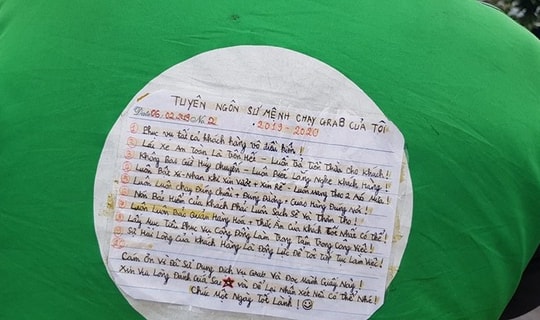 TUYÊN NGÔN SỨ MỆNH CHẠY GRAB CỦA TÔI
Date 06.02.2019 No 12
2019-2020
① Phục vụ tất cả khách hàng vô điều kiện!
② Lái Xe An Toàn Là Trên Hết - Luôn Trả Tiền Thừa Cho Khách!
③ Không Bao Giờ Hủy Chuyến - Luôn Biết Lắng Nghe Khách Hàng!
Luôn Bật Xi-Nhan Khi Xin Vượt - Xin Rẽ - Luôn Mang Theo 2 Áo Mưa!
Luôn Luôn Chạy Đúng Chuẩn - Đúng Đường, Giao Hàng Đúng Nơi!
Nón Bảo Hiểm Của Khách Phải Luôn Sạch Sẽ Và Thơm Tho!
Luôn Luôn Bảo Quản Hàng Hóa + Thức Ăn Của Khách Tốt Nhất Có Thể!
Lấy Mục Tiêu Phục Vụ Cộng Đồng Làm Trọng Tâm Trong Công Việc!
Sự Hài Lòng Của Khách Hàng Là Động Lực Để Tôi Tiếp Tục Làm Việc!
Cảm Ơn Vì Đã Sử Dụng Dịch Vụ Grab Và Đọc Mảnh Giấy Này!
Xin Vui Lòng Đánh Giá Sao Và Để Lại Nhận Xét Nếu Có Thể Nhé!
Chúc Một Ngày Tốt Lành!